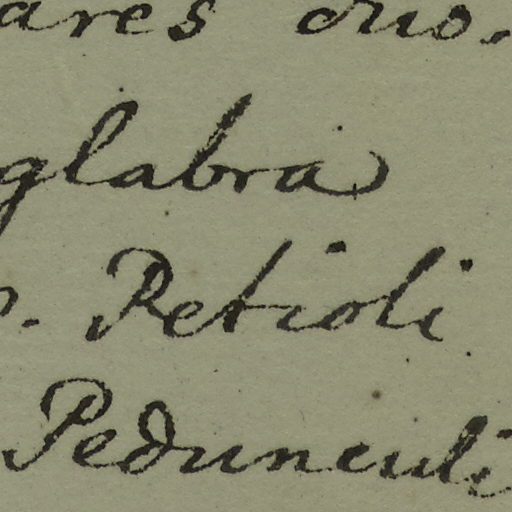 ares duo.
glabra
. Petioli
Pedunculi